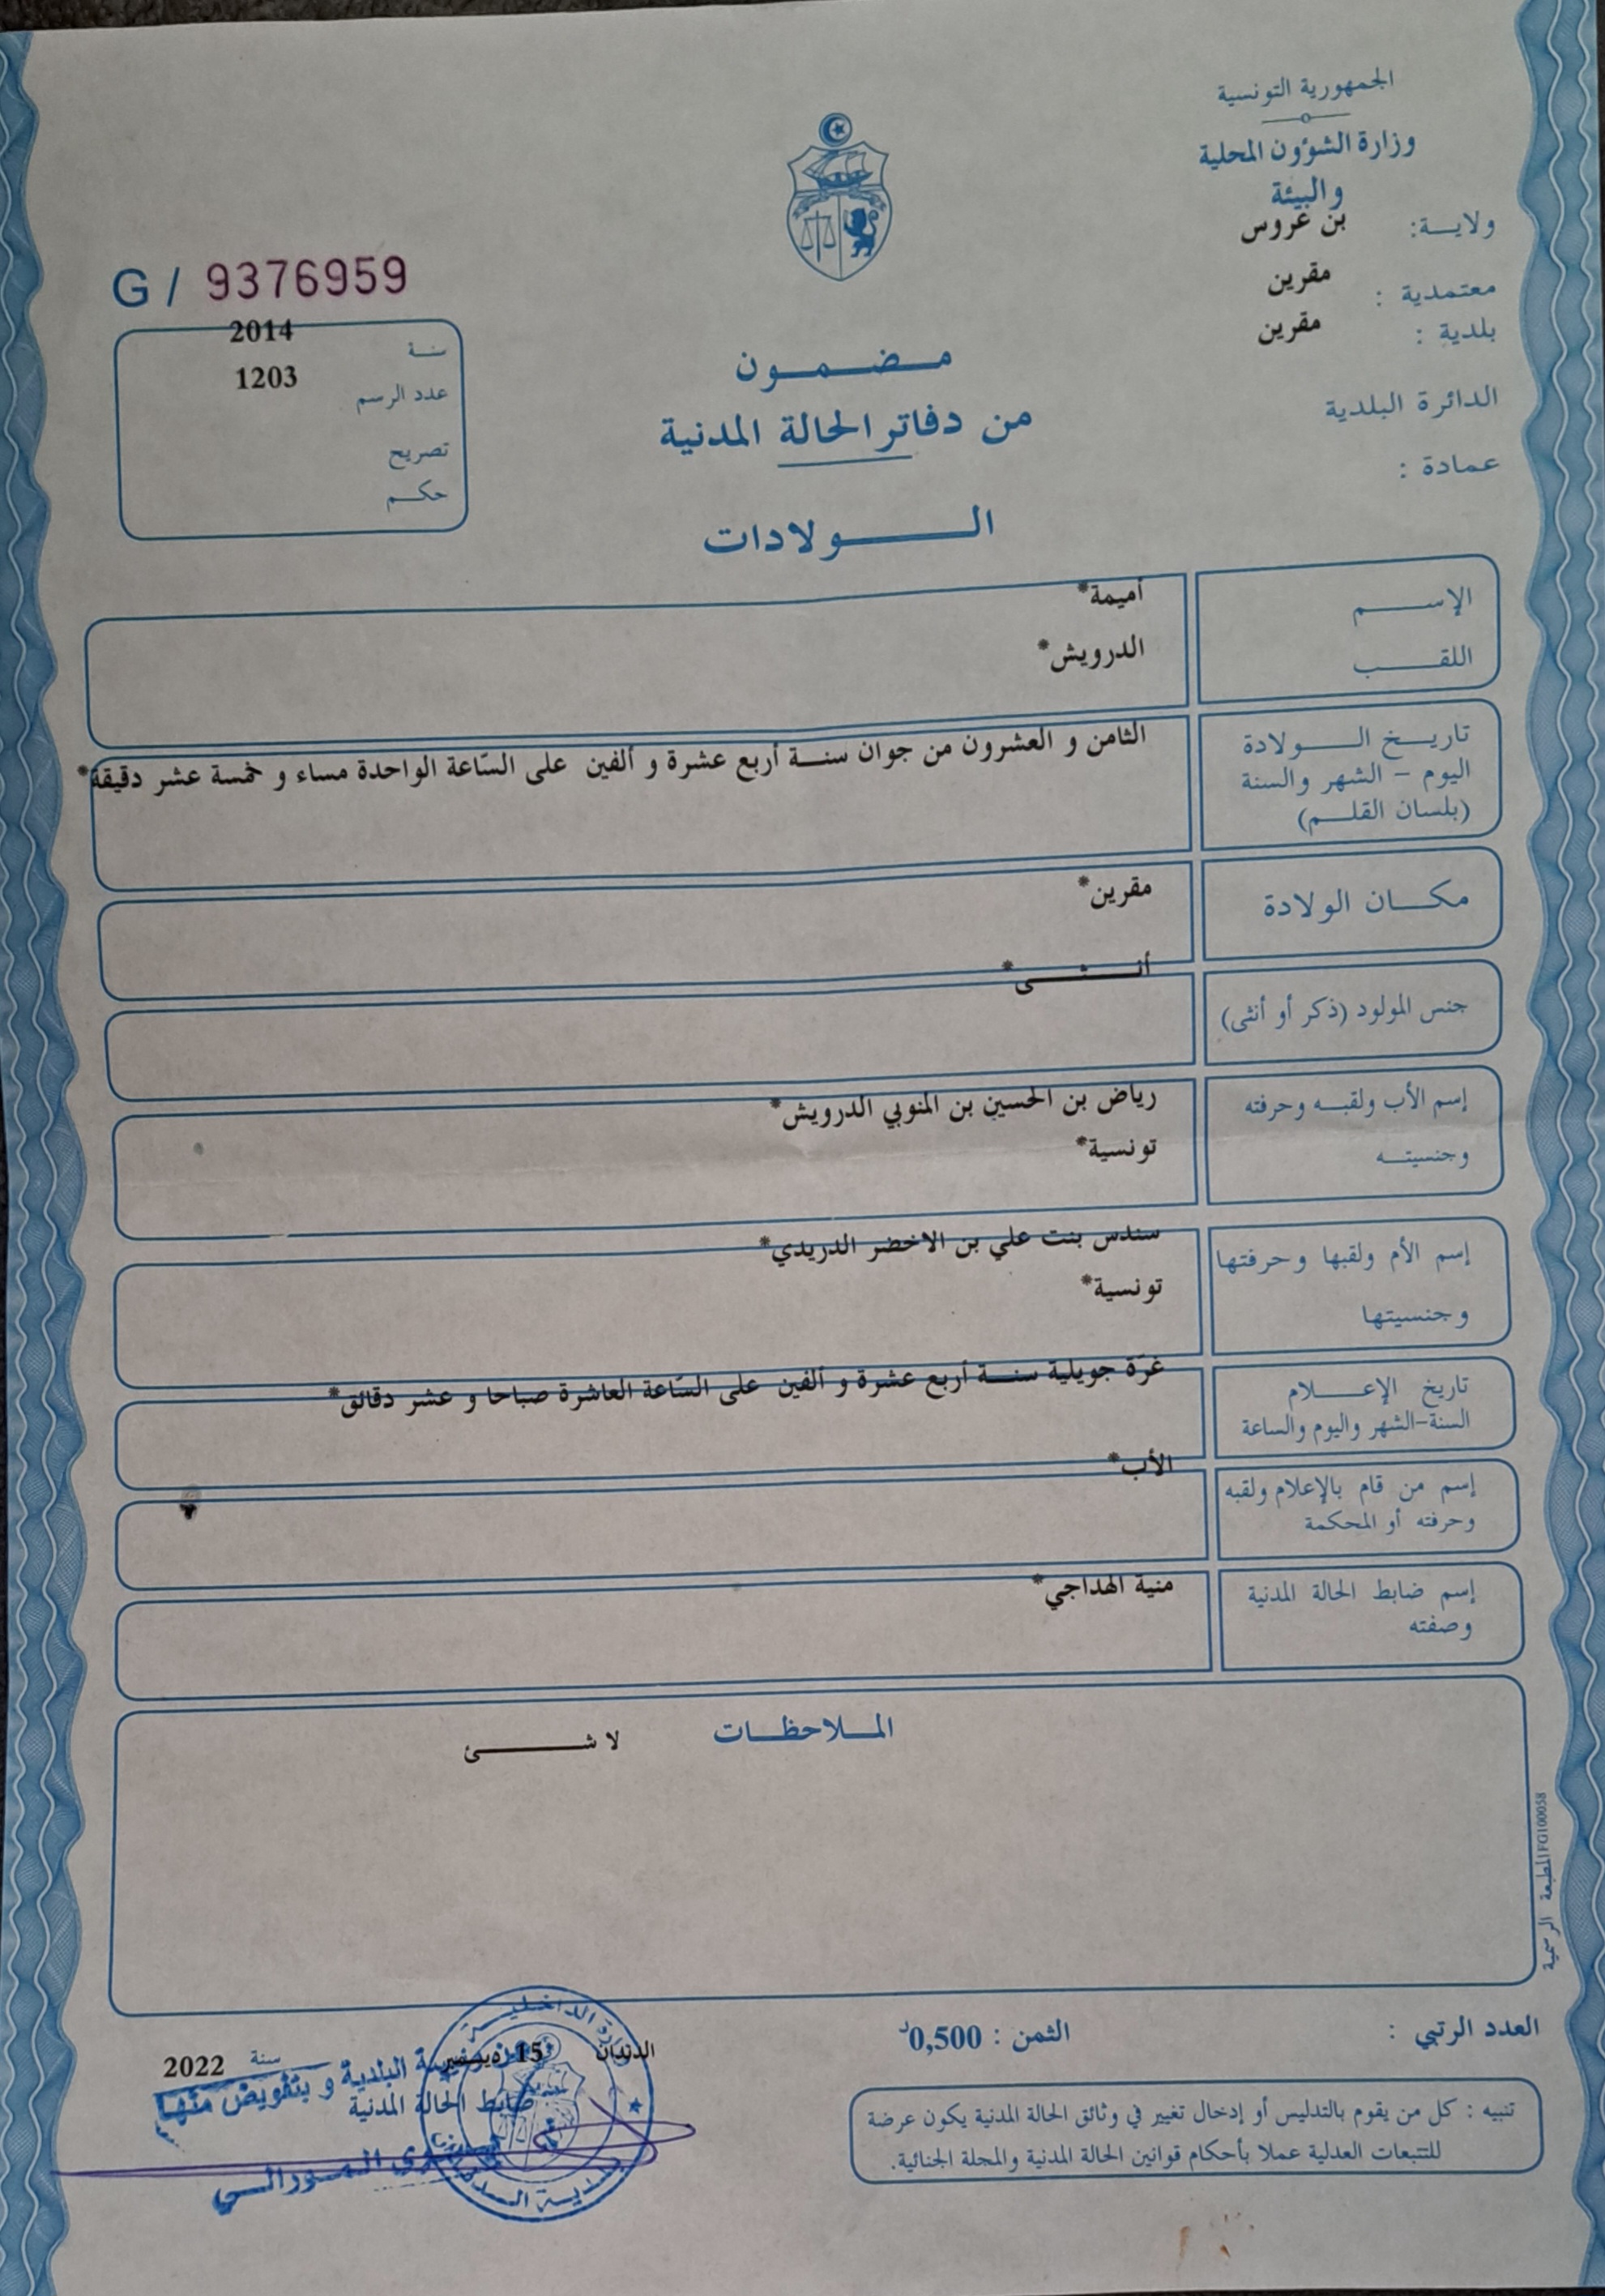 الجمهورية التونسية
وزارة الشؤون المحلية
والبيئة
ولايـــة: بن عروس
معتمدية : مقرين
بلدية : مقرين
الدائرة البلدية
عمادة :
G / 9376959
سنــة 2014
عدد الرسم 1203
تصريح
حكــم
مــضــمــون
من دفاتر الحالة المدنية
الـــولادات
الإســـم أميمة*
اللقـــب الدرويش*
تاريــخ الـــولادة الثامن و العشرون من جوان سنــة أربع عشرة و ألفين على السّاعة الواحدة مساء و خمسة عشر دقيقة*
اليوم – الشهر والسنة
(بلسان القلــم)
مكـــان الولادة مقرين*
جنس المولود (ذكر أو أنثى) أنـــثـــى*
إسم الأب ولقبــه وحرفته رياض بن الحسين بن المنوبي الدرويش*
وجنسيتــه تونسية*
إسم الأم ولقبها وحرفتها سندس بنت علي بن الاخضر الدريدي*
وجنسيتها تونسية*
تاريخ الإعـــلام غرّة جويلية سنــة أربع عشرة و ألفين على السّاعة العاشرة صباحا و عشر دقائق*
السنة-الشهر واليوم والساعة
إسم من قام بالإعلام ولقبه الأب*
وحرفته أو المحكمة
إسم ضابط الحالة المدنية منية الهداجي*
وصفته
المــلاحظــات
لا شـــــئ
المطبعة الرسمية FG100058
العدد الرتبي :
الثمن : 0,500د
الدندان 15 ديسمبر سنة 2022
البلدية و بتفويض منها
ضابط الحالة المدنية
تنبيه : كل من يقوم بالتدليس أو إدخال تغيير في وثائق الحالة المدنية يكون عرضة
للتتبعات العدلية عملا بأحكام قوانين الحالة المدنية والمجلة الجنائية.